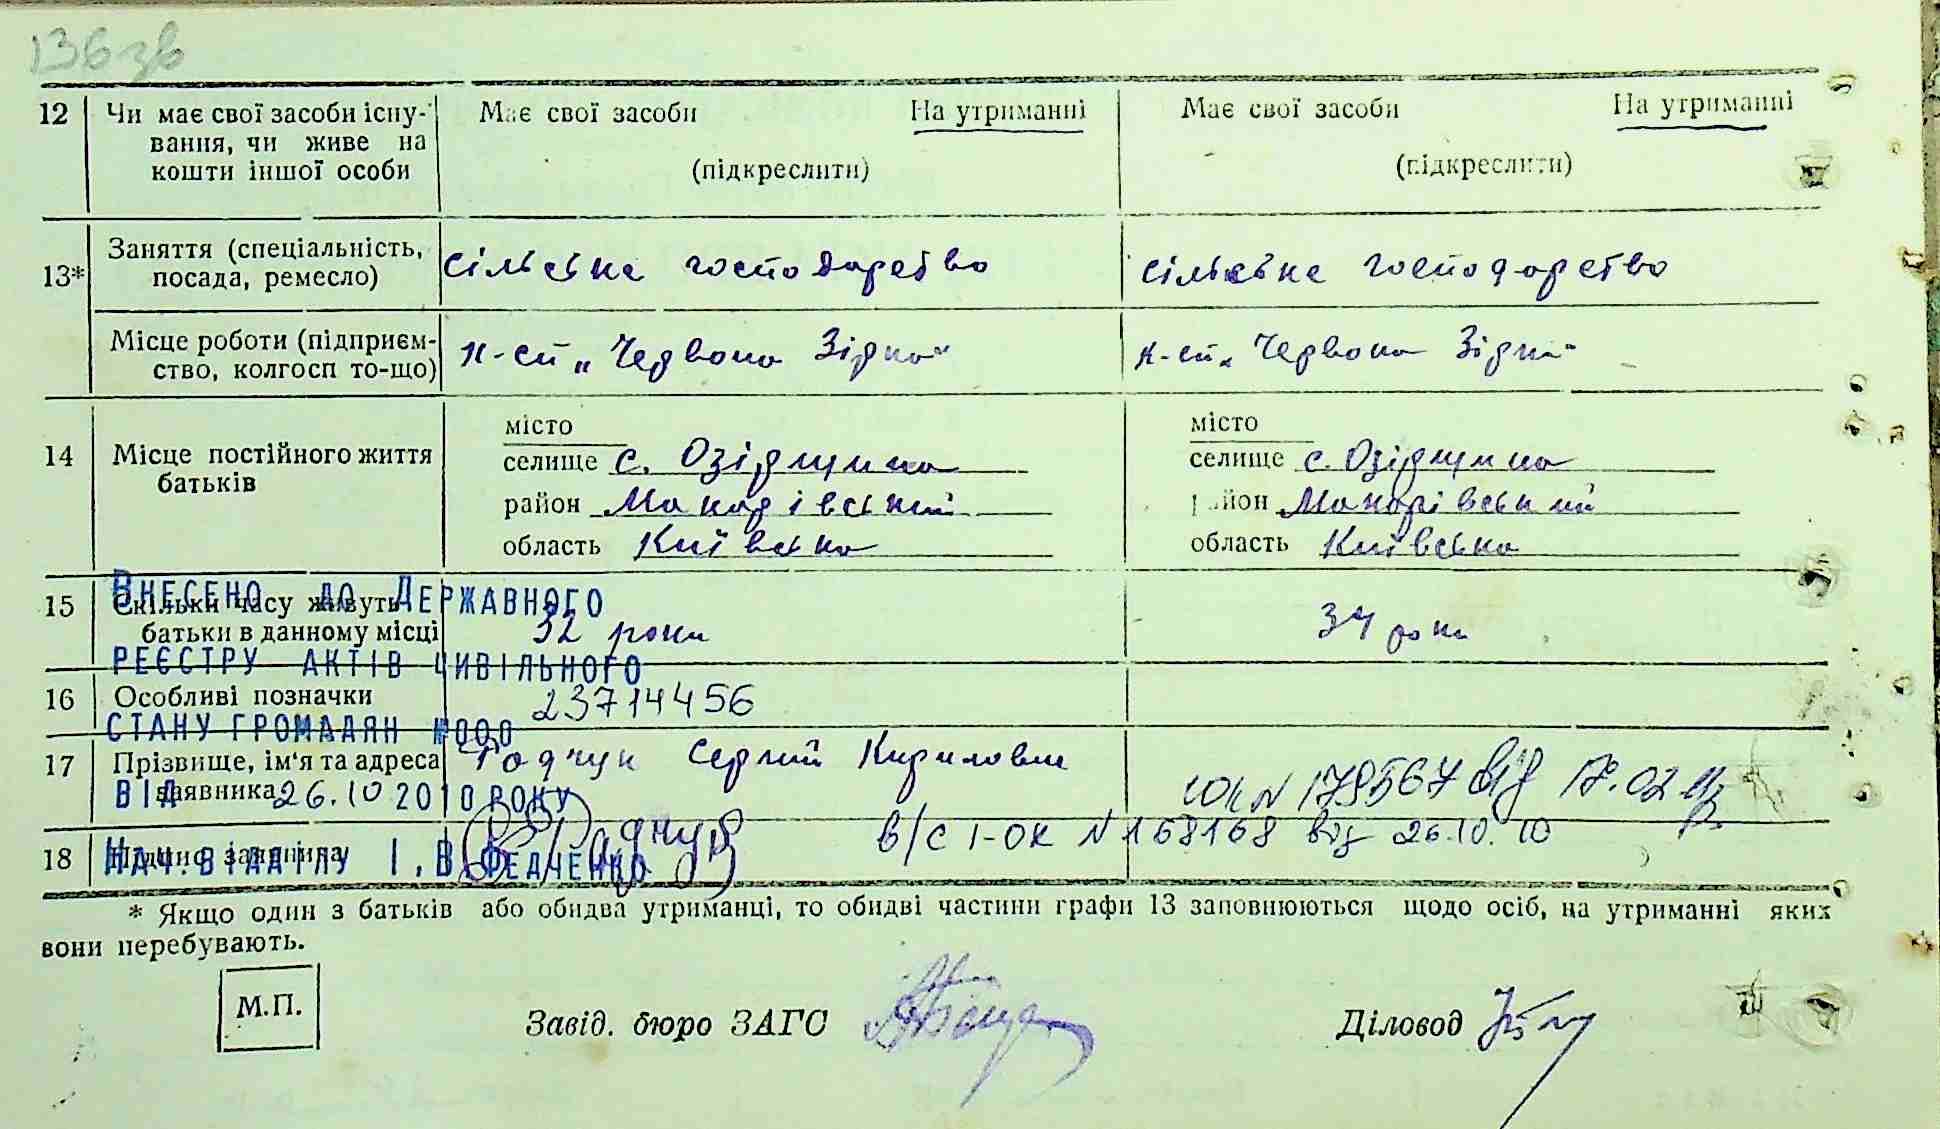 136 зв
12 Чи має свої засоби існу- Має свої засоби На утриманні Має свої засоби На утриманні
вання, чи живе на
кошти іншої особи (підкреслити) (підкреслити)
13* Заняття (спеціальність, посада, ремесло) сільське господарство сільське господарство
Місце роботи (підприєм- к-сп „Червона Зірка" к-сп „Червона Зірка"
ство, колгосп то-що)
14 Місце постійного життя батьків
місто місто
селище с. Озірщина селище с. Озірщина
район Макарівський район Макарівський
область Київська область Київська
ВНЕСЕНО ДО ДЕРЖАВНОГО
15 Скільки часу живуть
батьки в данному місці 32 роки 34 роки
РЕЄСТРУ АКТІВ ЦИВІЛЬНОГО
16 Особливі позначки 23714456
СТАНУ ГРОМАДЯН №000
17 Прізвище, ім'я та адреса Сергій Кирилович
заявника
ВІД 26.10 2010 РОКУ
від 17.02
в/с І-ОК N 168168 від 26.10.10
18 Підпис заявника
НАЧ.ВІДДІЛУ І.В.ФЕДЧЕНКО
* Якщо один з батьків або обидва утриманці, то обидві частини графи 13 заповнюються щодо осіб, на утриманні яких
вони перебувають.
М.П.
Завід. бюро ЗАГС Діловод